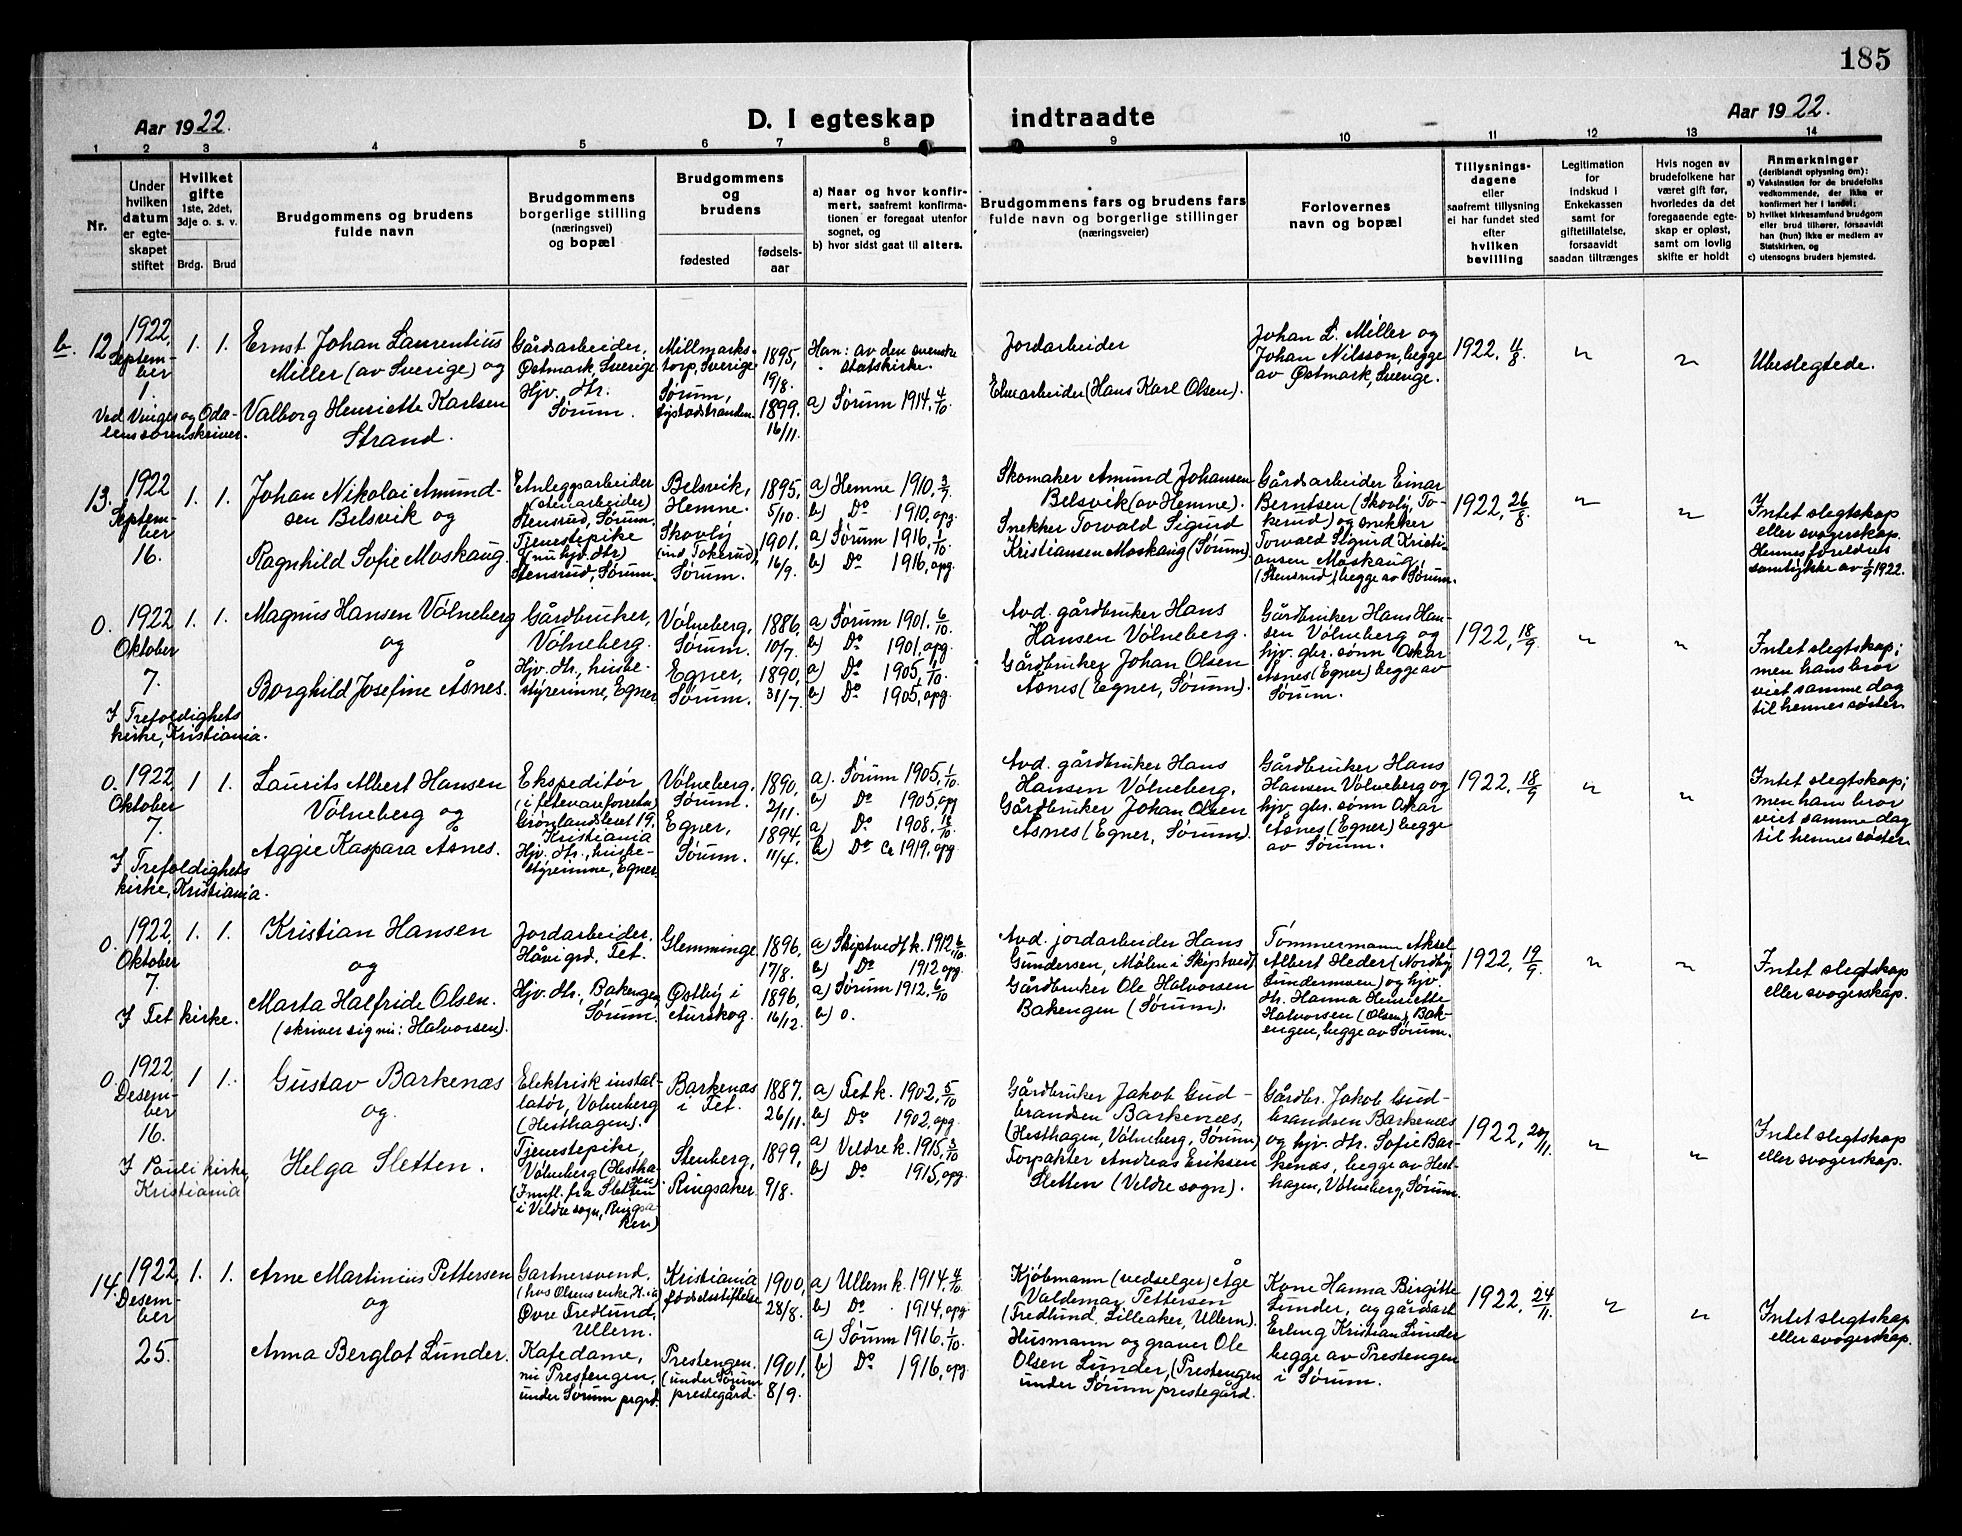 185
Aar 1922.
D. I egteskap indtraadte
Aar 1922.
1 2 3 4 5 6 7 8 9 10 11 12 13 14
Nr.
Under
hvilken
datum
er egte-
skapet
stiftet
Hvilket
gifte
1ste, 2det,
3dje o. s. v.
Brdg. Brud
Brudgommens og brudens
fulde navn
Brudgommens
borgerlige stilling
(næringsvei)
og bopæl
Brudgommens
og
brudens
fødested
fødsels-
aar
a) Naar og hvor konfir-
mert, saafremt konfirma-
tionen er foregaat utenfor
sognet, og
b) hvor sidst gaat til alters.
Brudgommens fars og brudens fars
fulde navn og borgerlige stillinger
(næringsveier)
Forlovernes
navn og bopæl
Tillysnings-
dagene
eller
saafremt tillysning
ei har fundet sted
efter
hvilken
bevilling
Legitimation
for
indskud i
Enkekassen
samt for
giftetillatelse,
forsaavidt
saadan tiltrænges
Hvis nogen av
brudefolkene har
været gift før,
hvorledes da det
foregaaende egte-
skap er opløst,
samt om lovlig
skifte er holdt
Anmerkninger
(deriblandt oplysning om):
a) Vaksination for de brudefolks
vedkommende, der ikke er
konfirmert her i landet;
b) hvilket kirkesamfund brudgom
eller brud tilhører, forsaavidt
han (hun) ikke er medlem av
Statskirken, og
c) utensogns bruders hjemsted.
b. 12.
1922,
Septem-
ber
1.
Ved Vinger og Oda-
lens sorenskriver.
1. 1.
Ernst Johan Laurentius
Miller (av Sverige) og
Valborg Henriette Karlsen
Strand.
Gårdsarbeider,
Østmark, Sverige
Hjv. dtr.
Sørum.
Millmarks-
torp, Sverige
Sørum,
1895,
19/8.
1899.
16/11.
Han: av den svenske
statskirke.
a) Sørum 1914, 4/10.
Jordarbeider
Elvearbeider (Hans Karl Olsen).
Johan L. Miller og
Johan Nilsson, begge
av Østmark, Sverige.
1922, 11/8
"
"
Ubeslegtede.
13.
1922
Septem-
ber
16.
1. 1.
Johan Nikolai Amund-
sen Belsvik og
Ragnhild Sofie Moskaug.
Anleggsarbeider
(stenarbeider)
Stensrud, Sørum.
Tjenestepike
(nu hjv. dtr)
Stensrud, Sørum.
Belsvik,
Hemne.
Skovly
(ind. Tokerud),
Sørum.
1895,
5/10.
1901.
16/9.
a) Hemne 1910, 3/7.
b) Do 1910, opg.
a) Sørum 1916, 1/10.
b) Do 1916, opg.
Skomaker Amund Johansen
Belsvik (av Hemne).
Snekker Torvald Sigurd
Kristiansen Moskaug (Sørum).
Gårdsarbeider Einar
Berntsen (Skovly, To-
kerud) og snekker
Torvald Sigurd Kristi-
ansen Moskaug,
(Stensrud), begge av Sørum.
1922, 26/8
"
"
Intet slegtskap
eller svogerskap.
Hennes foreldres
samtykke av 1/9 1922.
0.
1922
Oktober
7.
I Trefoldighets
kirke, Kristiania.
1. 1.
Magnus Hansen Vølneberg
og
Borghild Josefine Åsnes.
Gårdbruker,
Vølneberg.
Hjv. dtr., husbe-
styrerinne, Egner
Vølneberg,
Sørum.
Egner,
Sørum.
1886,
10/7.
1890,
31/7.
a) Sørum 1901. 6/10.
b) Do 1901, opg.
a) Do 1905, 1/10.
b) Do 1905, opg.
Avd. gårdbruker Hans
Hansen Vølneberg.
Gårdbruker Johan Olsen
Åsnes (Egner, Sørum).
Gårdbruker Hans Han-
sen Vølneberg og
hjv. gbr. sønn Oskar
Åsnes (Egner) begge av
Sørum.
1922, 18/9
"
"
Intet slegtskap;
men hans bror
viet samme dag
til hennes søster.
0.
1922
Oktober
7.
I Trefoldighets
kirke, Kristiania.
1 1.
Laurits Albert Hansen
Vølneberg og
Aggie Kaspara Åsnes.
Ekspeditør
(i fetevareforretn.)
Grønlandsleret 19.
Kristiania
Hjv. dtr., husbe-
styrerinne, Egner.
Vølneberg,
Sørum.
Egner,
Sørum.
1890,
2/11.
1894,
11/4.
a). Sørum 1905, 1/10.
b) Do 1905, opg
a) Do 1908, 18/10.
b) Do Ca 1919, opg.
Avd. gårdbruker Hans
Hansen Vølneberg.
Gårdbruker Johan Olsen
Åsnes (Egner, Sørum).
Gårdbruker Hans
Hansen Vølneberg og
hjv. gbr. sønn Oskar
Åsnes (Egner) begge
av Sørum.
1922, 18/9
"
"
Intet slegtskap;
men hans bror
viet samme dag
til hennes søster.
0.
1922
Oktober
7.
I Fet kirke.
1. 1.
Kristian Hansen
og
Marta Halfride Olsen.
(skriver sig nu: Halvorsen).
Jordarbeider.
Håvi grd, Fet.
Hjv. dtr., Bakengen
Sørum.
Glemminge
Østby i
Aurskog.
1896,
17/8.
1896,
16/12.
a) Skiptvedt k. 1912, 6/10.
b) Do 1912 opg.
a) Sørum 1912, 6/10
b) 0.
Avd. jordarbeider Hans
Gundersen, Mølen i Skiptvedt.
Gårdbruker Ole Halvorsen
Bakengen (Sørum).
Tømmermann Aksel
Albert Heder (Nordby,
Sundermoen) og hjv.
dtr. Hanna Henriette
Halvorsen (Olsen), Bak-
engen, begge av Sørum.
1922, 19/9.
"
"
Intet slegtskap
eller svogerskap.
0.
1922
Desem-
ber
16.
I Pauli kirke,
Kristiania
1 1.
Gustav Barkenæs
og.
Helga Sletten.
Elektrisk instal-
latør, Vølneberg
(Hesthagen).
Tjenestepike,
Vølneberg (Hestha-
gen)
(Innfl. fra Sletten
i Veldre sogn, Ringsa-
ker)
Barkenæs
i Fet.
Stenberg,
Ringsaker.
1887.
26/11.
1899,
9/8.
a) Fet k. 1902, 5/10
b) Do 1902, opg.
a) Veldre k. 1915, 3/10
b) Do 1915, opg.
Gårdbruker Jakob Gud-
brandsen Barkenæs,
(Hesthagen, Vølneberg, Sørum)
Forpakter Andreas Eriksen
Sletten (Veldre sogn).
Gårdbr. Jakob Gud-
brandsen Barkenæs
og hjv. dtr. Sofie Bar-
kenæs, begge av Hest-
hagen, Vølneberg, Sørum.
1922, 20/11.
"
"
Intet slegtskap
eller svogerskap.
14.
1922,
Desem-
ber
25.
1. 1.
Arne Martinius Pettersen
og
Anna Berglot Lunder.
Gartnersvend.
(hos Olsens enke
Øvre Fredlund,
Ullern.
Kafedame,
nu Prestengen,
under Sørum prgrd.
Kristiania
fødselsstiftelse
Prestengen.
(under Sørum
prestegård.
1900,
28/8.
1901,
8/9.
a) Ullern k. 1914. 4/10.
b) Do 1914, opg.
a) Sørum 1916. 1/10.
b) Do 1916, opg.
Kjøbmann (vedselger) Åge
Valdemar Pettersen
(Fredlund, Lilleaker, Ullern).
Husmann og graver Ole
Olsen Lunder, (Prestengen
under Sørum prestegård.
Kone Hanna Birgitte
Lunder, og gårdsarb
Erling Kristian Lunder
begge av Prestengen
i Sørum.
1922, 24/11.
"
"
Intet slegtskap
eller svogerskap.